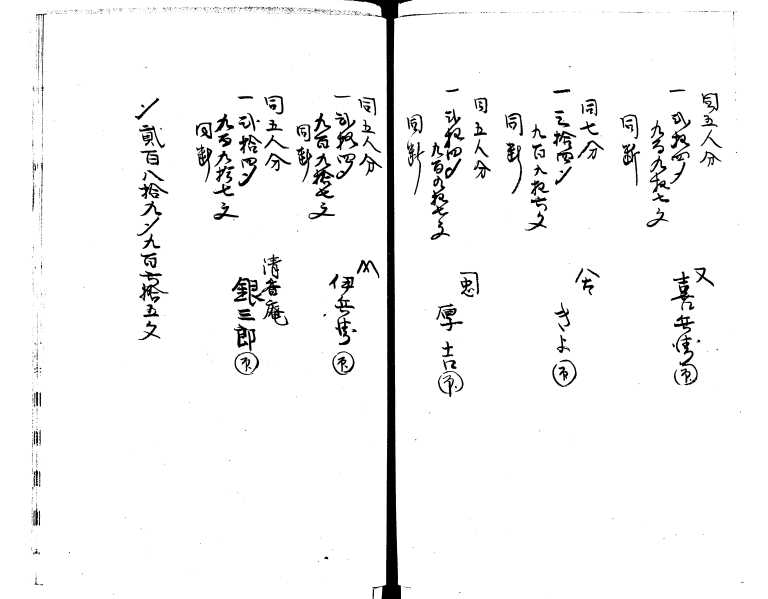 同五人分
一弐拾四〆
九百九拾七文
同断
又
喜兵衛 印
同七分
一三拾四〆
九百九拾六文
同断
きよ 印
同五人分
一弐拾四〆
九百九拾七文
同断
忠
厚吉 印
同五人分
一弐拾四〆
九百九拾七文
同断
伊兵衛 印
同五人分
一弐拾四〆
九百九拾七文
同断
清香庵
銀三郎 印
〆貳百八拾九〆九百七拾五文